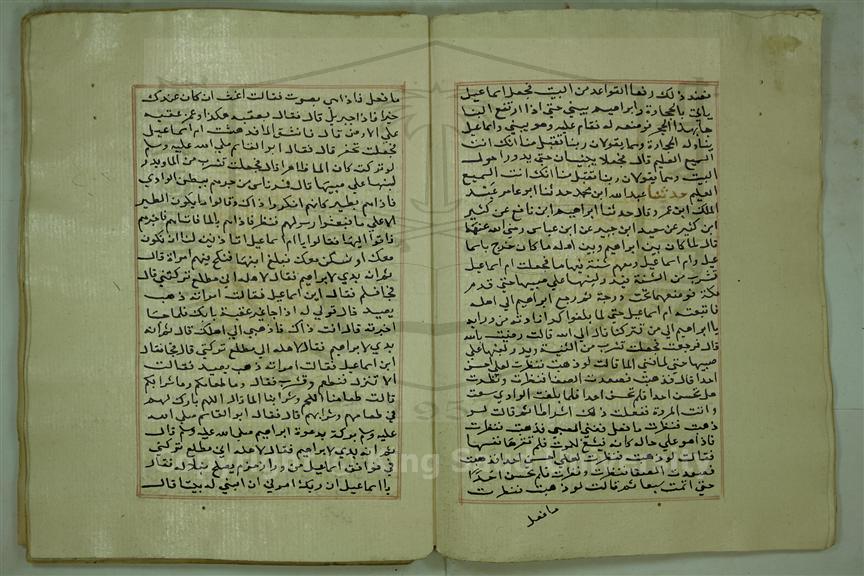 فعند ذلك رفعا القواعد من البيت فجعل اسماعيل
ياتي بالحجارة وابراهيم يبني حتي اذا ارتفع البنا
جا بهذا الحجر فوضعه له فقام عليه وهو يبني واسماعيل
يناوله الحجارة وهما يقولان ربنا تقبل منا انك انت
السميع العليم قال فجعلا يبنيان حتي يدورا حول
البيت وهما يقولان ربنا تقبل منا انك انت السميع
العليم حدثنا عبد الله ابن محمد حدثنا ابو عامر عبد
الملك ابن عمر وقال حدثنا ابراهيم ابن نافع عن كثير
ابن كثير عن سعيد ابن جبير عن ابن عباس رضي الله عنهما
قال لما كان بين ابراهيم وبين اهله ما كان خرج باسما
عيل وام اسماعيل ومعهم شنة فيها ما فجعلت ام اسماعيل
تشرب من الشنة فيدر لبنها علي صبيها حتي قدم
مكة فوضعها تحت دوحة ثم رجع ابراهيم الي اهله
فاتبعته ام اسماعيل حتي لما بلغوا كدا نادته من ورايه
يا ابراهيم الي من تتركنا قال الي الله قالت رضيت بالله
قال فرجعت فجعلت تشرب من الشنة ويدر لبنها علي
صبيها حتي لما فني الما قالت لو ذهبت فنظرت لعلي احس
احدا قال فذهبت فصعدت الصفا فنظرت ونظرت
هل تحس احدا فلم تحس احدا فلما بلغت الوادي سعت
واتت المروة ففعلت ذلك اشواطا ثم قالت لو
ذهبت فنظرت ما فعل تعني الصبي فذهبت فنظرت
فاذا هو علي حاله كانه ينشغ للموت فلم تقرها نفسها
فقالت لو ذهبت فنظرت لعلي احس احدا فذهبت
فصعدت الصفا فنظرت ونظرت فلم تحس احدا
حتي اتمت سبعا ثم قالت لو ذهبت فنظرت
ما فعل
ما فعل فاذا هي بصوت فقالت اغث ان كان عندك
خير فاذا جبريل قال فقال بعقبه هكذا وغمز عقبه
علي الارض قال فانشق الما فدهشت ام اسماعيل
فجعلت تحفر قال فقال ابو القاسم صلي الله عليه وسلم
لو تركته كان الما ظاهرا قال فجعلت تشرب من الما ويدر
لبنها علي صبيها قال فمر ناس من جرهم ببطن الوادي
فاذا هم بطير كانهم انكروا ذاك وقالوا ما يكون الطير
الا علي ما فبعثوا رسولهم فنظر فاذا هم بالما فاتاهم فاخبرهم
فاتوا اليها فقالوا يا ام اسماعيل اتاذنين لنا ان نكون
معك او نسكن معك فبلغ ابنها فنكح فيهم امراة قال
ثم انه بدي لابراهيم فقال لاهله اني مطلع تركتي قال
فجا فسلم فقال اين اسماعيل فقالت امراته ذهب
يصيد قال قولي له اذا جا غير عتبة بابك فلما جا
اخبرته قال انت ذاك فاذهبي الي اهلك قال ثم انه
بدي لابراهيم فقال لاهله اني مطلع تركتي قال فجا فقال
اين اسماعيل فقالت امراته ذهب يصيد فقالت
الا تنزل فتطعم وتشرب فقال وما طعامكم وما شرابكم
قالت طعامنا اللحم وشرابنا الما قال اللهم بارك لهم
في طعامهم وشرابهم قال فقال ابو القاسم صلي الله
عليه وسلم بركة بدعوة ابراهيم صلي الله عليه وسلم قال
ثم انه بدي لابراهيم فقال لاهله اني مطلع تركتي
فجا فوافق اسماعيل من ورا زمزم يصلح نبلا له فقال
يا اسماعيل ان ربك امرني ان ابني له بيتا قال